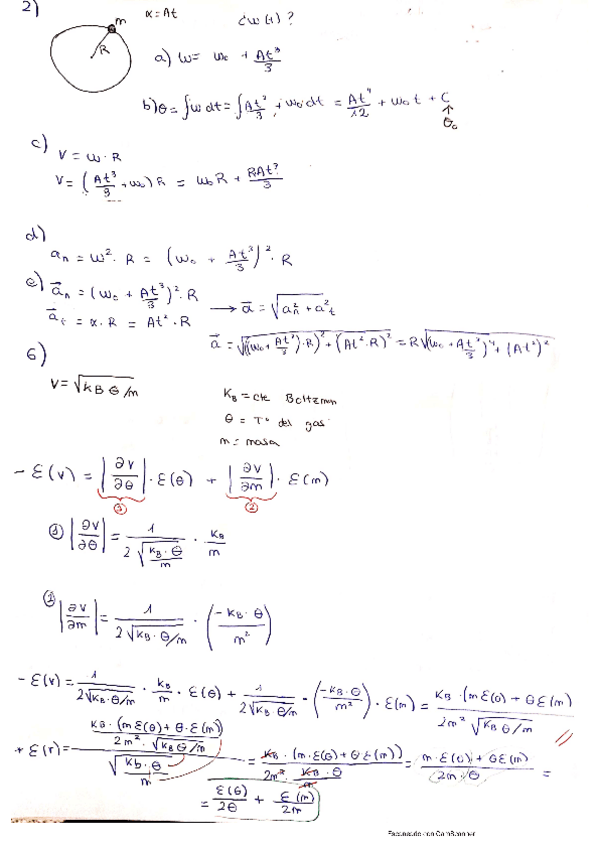 2)
m
R
α = At
¿w(t)?
a) w = w₀ + At³/3
b) θ = ∫w dt = ∫At³/3 + w₀ dt = At⁴/12 + w₀t + C
↑
θ₀
c)
v = w·R
v = (At³/3 + w₀)R = w₀R + RAt³/3
d)
aₙ = w²·R = (w₀ + At³/3)²·R
e) a⃗ₙ = (w₀ + At³/3)²·R
a⃗ₜ = α·R = At²·R → a⃗ = √(aₙ² + a²ₜ)
a⃗ = √(((w₀ + At³/3)²·R)² + (At²·R)²) = R√((w₀ + At³/3)⁴ + (At²)²)
6)
v = √(k_B θ/m)
K_B = cte Boltzman
θ = Tº del gas
m = masa
- ε(v) = |∂v/∂θ|·ε(θ) + |∂v/∂m|·ε(m)
① ②
① |∂v/∂θ| = 1/(2√(k_B·θ/m)) · k_B/m
② |∂v/∂m| = 1/(2√(k_B·θ/m)) · (-k_B·θ/m²)
- ε(v) = 1/(2√(k_B·θ/m)) · k_B/m · ε(θ) + 1/(2√(k_B·θ/m)) · (-k_B·θ/m²) · ε(m) = k_B·(m ε(θ) + θ ε(m))/(2m² √(k_B θ/m)) //
* ε(r) = (k_B·(m ε(θ) + θ·ε(m))/(2m²·√(k_B θ/m)))/√(k_b·θ/m) = k_B·(m·ε(θ) + θ ε(m))/(2m²·k_B·θ/m) = (m·ε(θ) + θε(m))/(2m·θ) =
= ε(θ)/2θ + ε(m)/2m
Escaneado con CamScanner